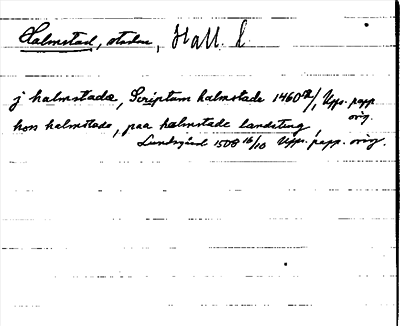 Halmstad, staden, Hall. l
j halmstadæ, Scriptum halmstade 1460 Upps. papp.
orig.
hos halmstade, paa halmstade landsting,
Lundsgård 1508 16/10 Upps. papp. orig.